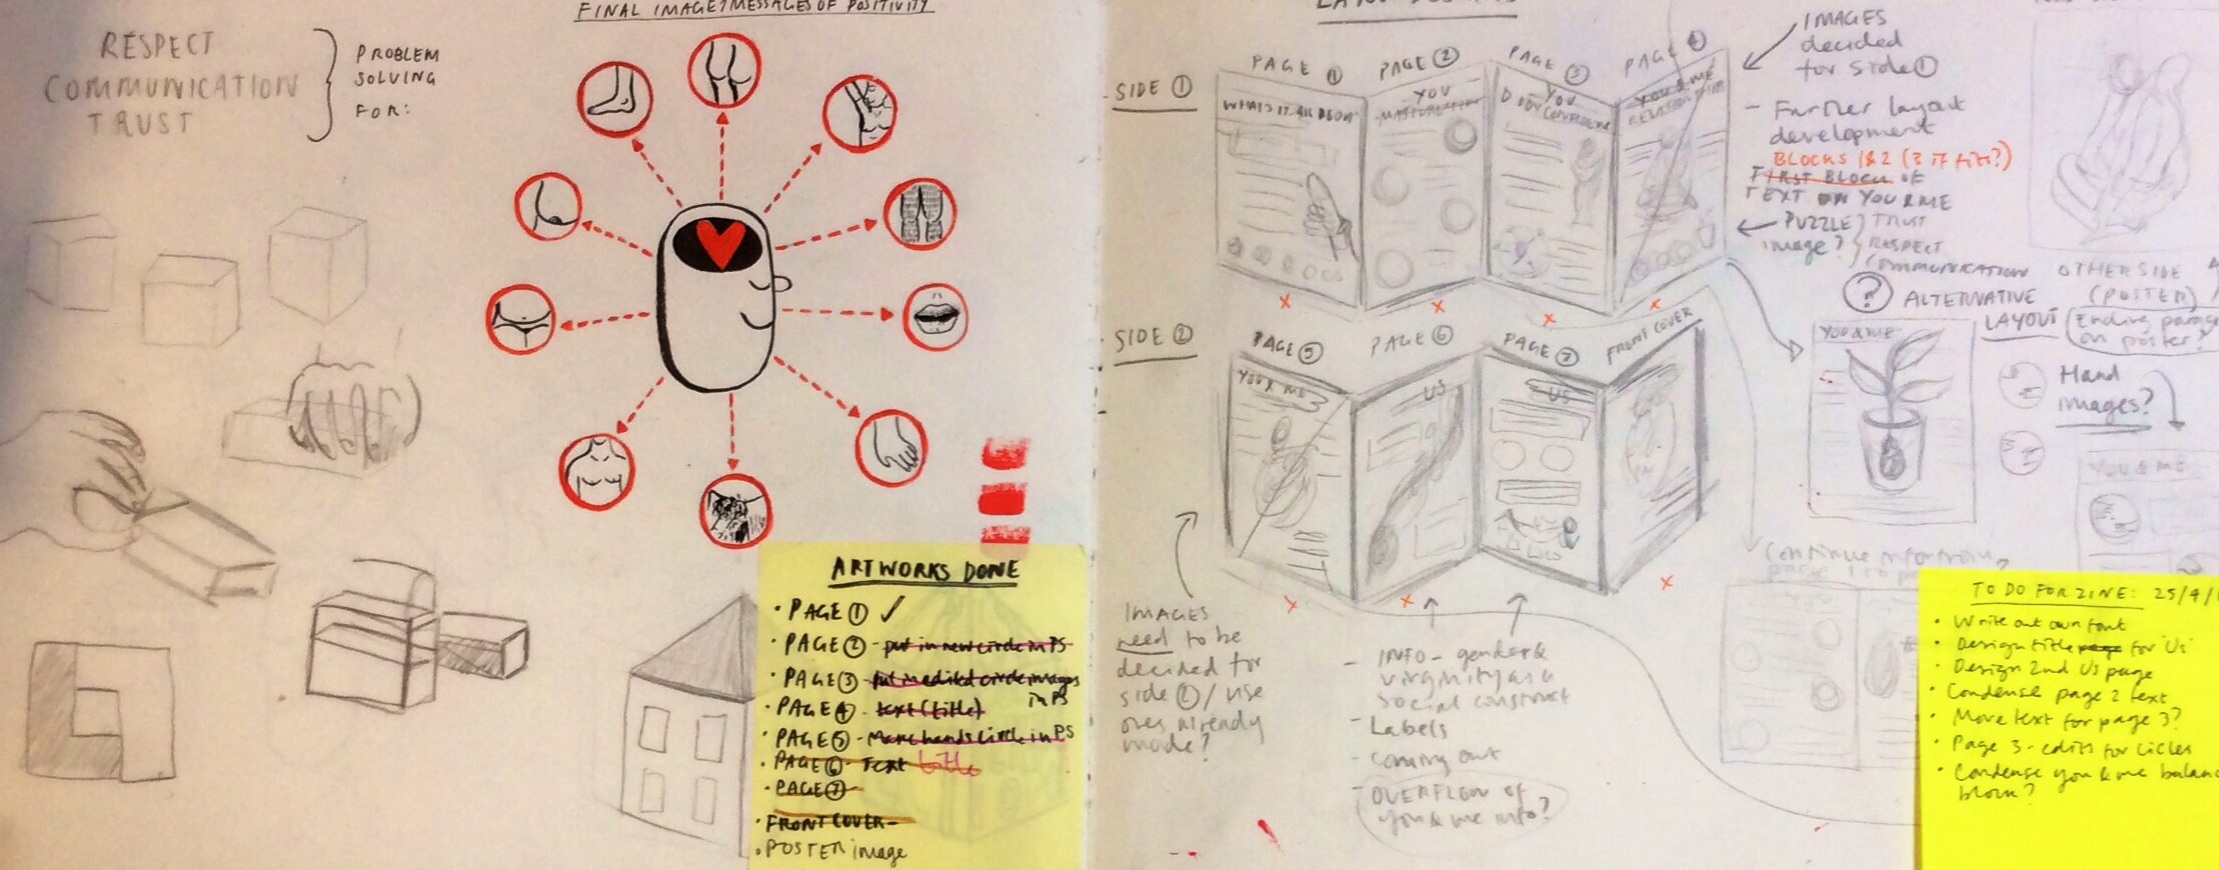 FINAL IMAGE? MESSAGES OF POSITIVITY
RESPECT
COMMUNICATION
TRUST
PROBLEM
SOLVING
FOR:
ARTWORKS DONE
• PAGE ① ✓
• PAGE ② - put in new circle in PS
• PAGE ③ - put in edited circle images
in PS
• PAGE ④ - text (title)
• PAGE ⑤ - More hands circle in PS
• PAGE ⑥ - TEXT title
• PAGE ⑦ -
• FRONT COVER -
• POSTER image
SIDE ①
PAGE ①
PAGE ②
PAGE ③
PAGE ④
WHAT'S IT ALL ABOUT
YOU
MASTURBATION
YOU
BODY CONFIDENCE
YOU & ME
RELATIONSHIP
IMAGES
decided
for side ①
- Further layout
development
BLOCKS 1&2 (3 if fits?)
FIRST BLOCK OF
TEXT ON YOU & ME
PUZZLE
image?
TRUST
RESPECT
COMMUNICATION
SIDE ②
PAGE ⑤
PAGE ⑥
PAGE ⑦
FRONT COVER
YOU & ME
US
US
? ALTERNATIVE
LAYOUT
YOU & ME
OTHER SIDE
(POSTER)
Ending
on poster?
Hand
images?
YOU & ME
Continue info from
page 1 to
IMAGES
need to be
decided for
side ② / use
ones already
made?
- INFO - gender &
virginity as a
social construct
- Labels
- Coming out
- OVERFLOW OF
you & me info?
TO DO FOR ZINE: 25/4/
• Write out own font
• Design title page for 'Us'
• Design 2nd Us page
• Condense page 2 text
• Move text for page 3?
• Page 3 - edits for circles
• Condense you & me balance
block?